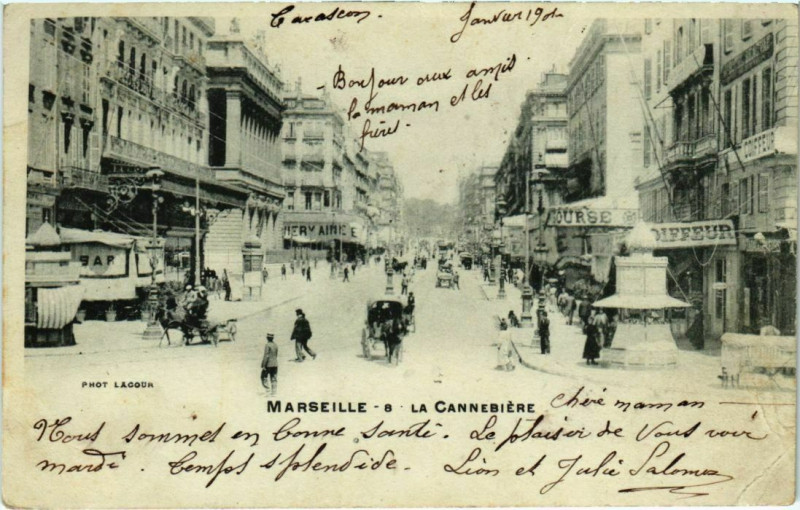 Tarascon. Janvier 1901
- Bonjour aux amis.
la maman et les
frères -
COIFFEUR
BOURSE
COIFFEUR
BAR
PHOT LACOUR
MARSEILLE - 8 - LA CANNEBIÈRE
Chère maman -
Nous sommes en bonne santé. Le plaisir de vous voir
mardi. Temps splendide. - Léon et Julie Salomez